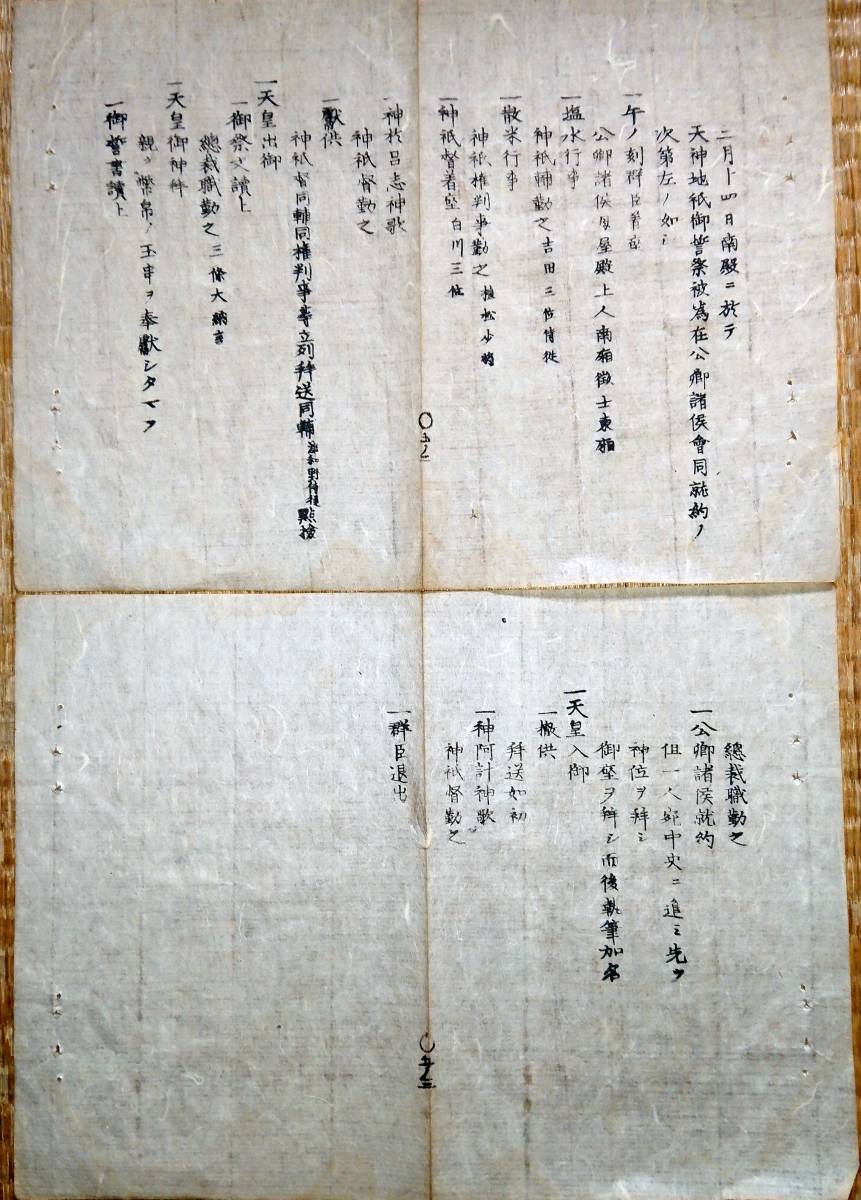 二月十四日南殿ニ於テ
天神地祇御誓祭被為在公卿諸侯會同就約ノ
次第左ノ如シ
一午ノ刻群臣着座
公卿諸侯母屋殿上人南廂徴士東廂
一塩水行事
神祇輔勤之吉田三位侍従
一散米行事
神祇権判事勤之植松少将
一神祇督着座白川三位
一神於呂志神歌
神祇督勤之
一獻供
神祇督同輔同権判事等立列拜送同輔津和野侍従點檢
一天皇出御
一御祭文讀上
總裁職勤之三條大納言
一天皇御神拜
親ク幣帛ノ玉串ヲ奉獻シタマヲ
一御誓書讀上
五ノ一
總裁職勤之
一公卿諸侯就約
但一人宛中央ニ進ミ先ツ
神位ヲ拜シ
御座ヲ拜シ而後執筆加名
一天皇入御
一撤供
拜送如初
一神阿計神歌
神祇督勤之
一群臣退出
五ノ二